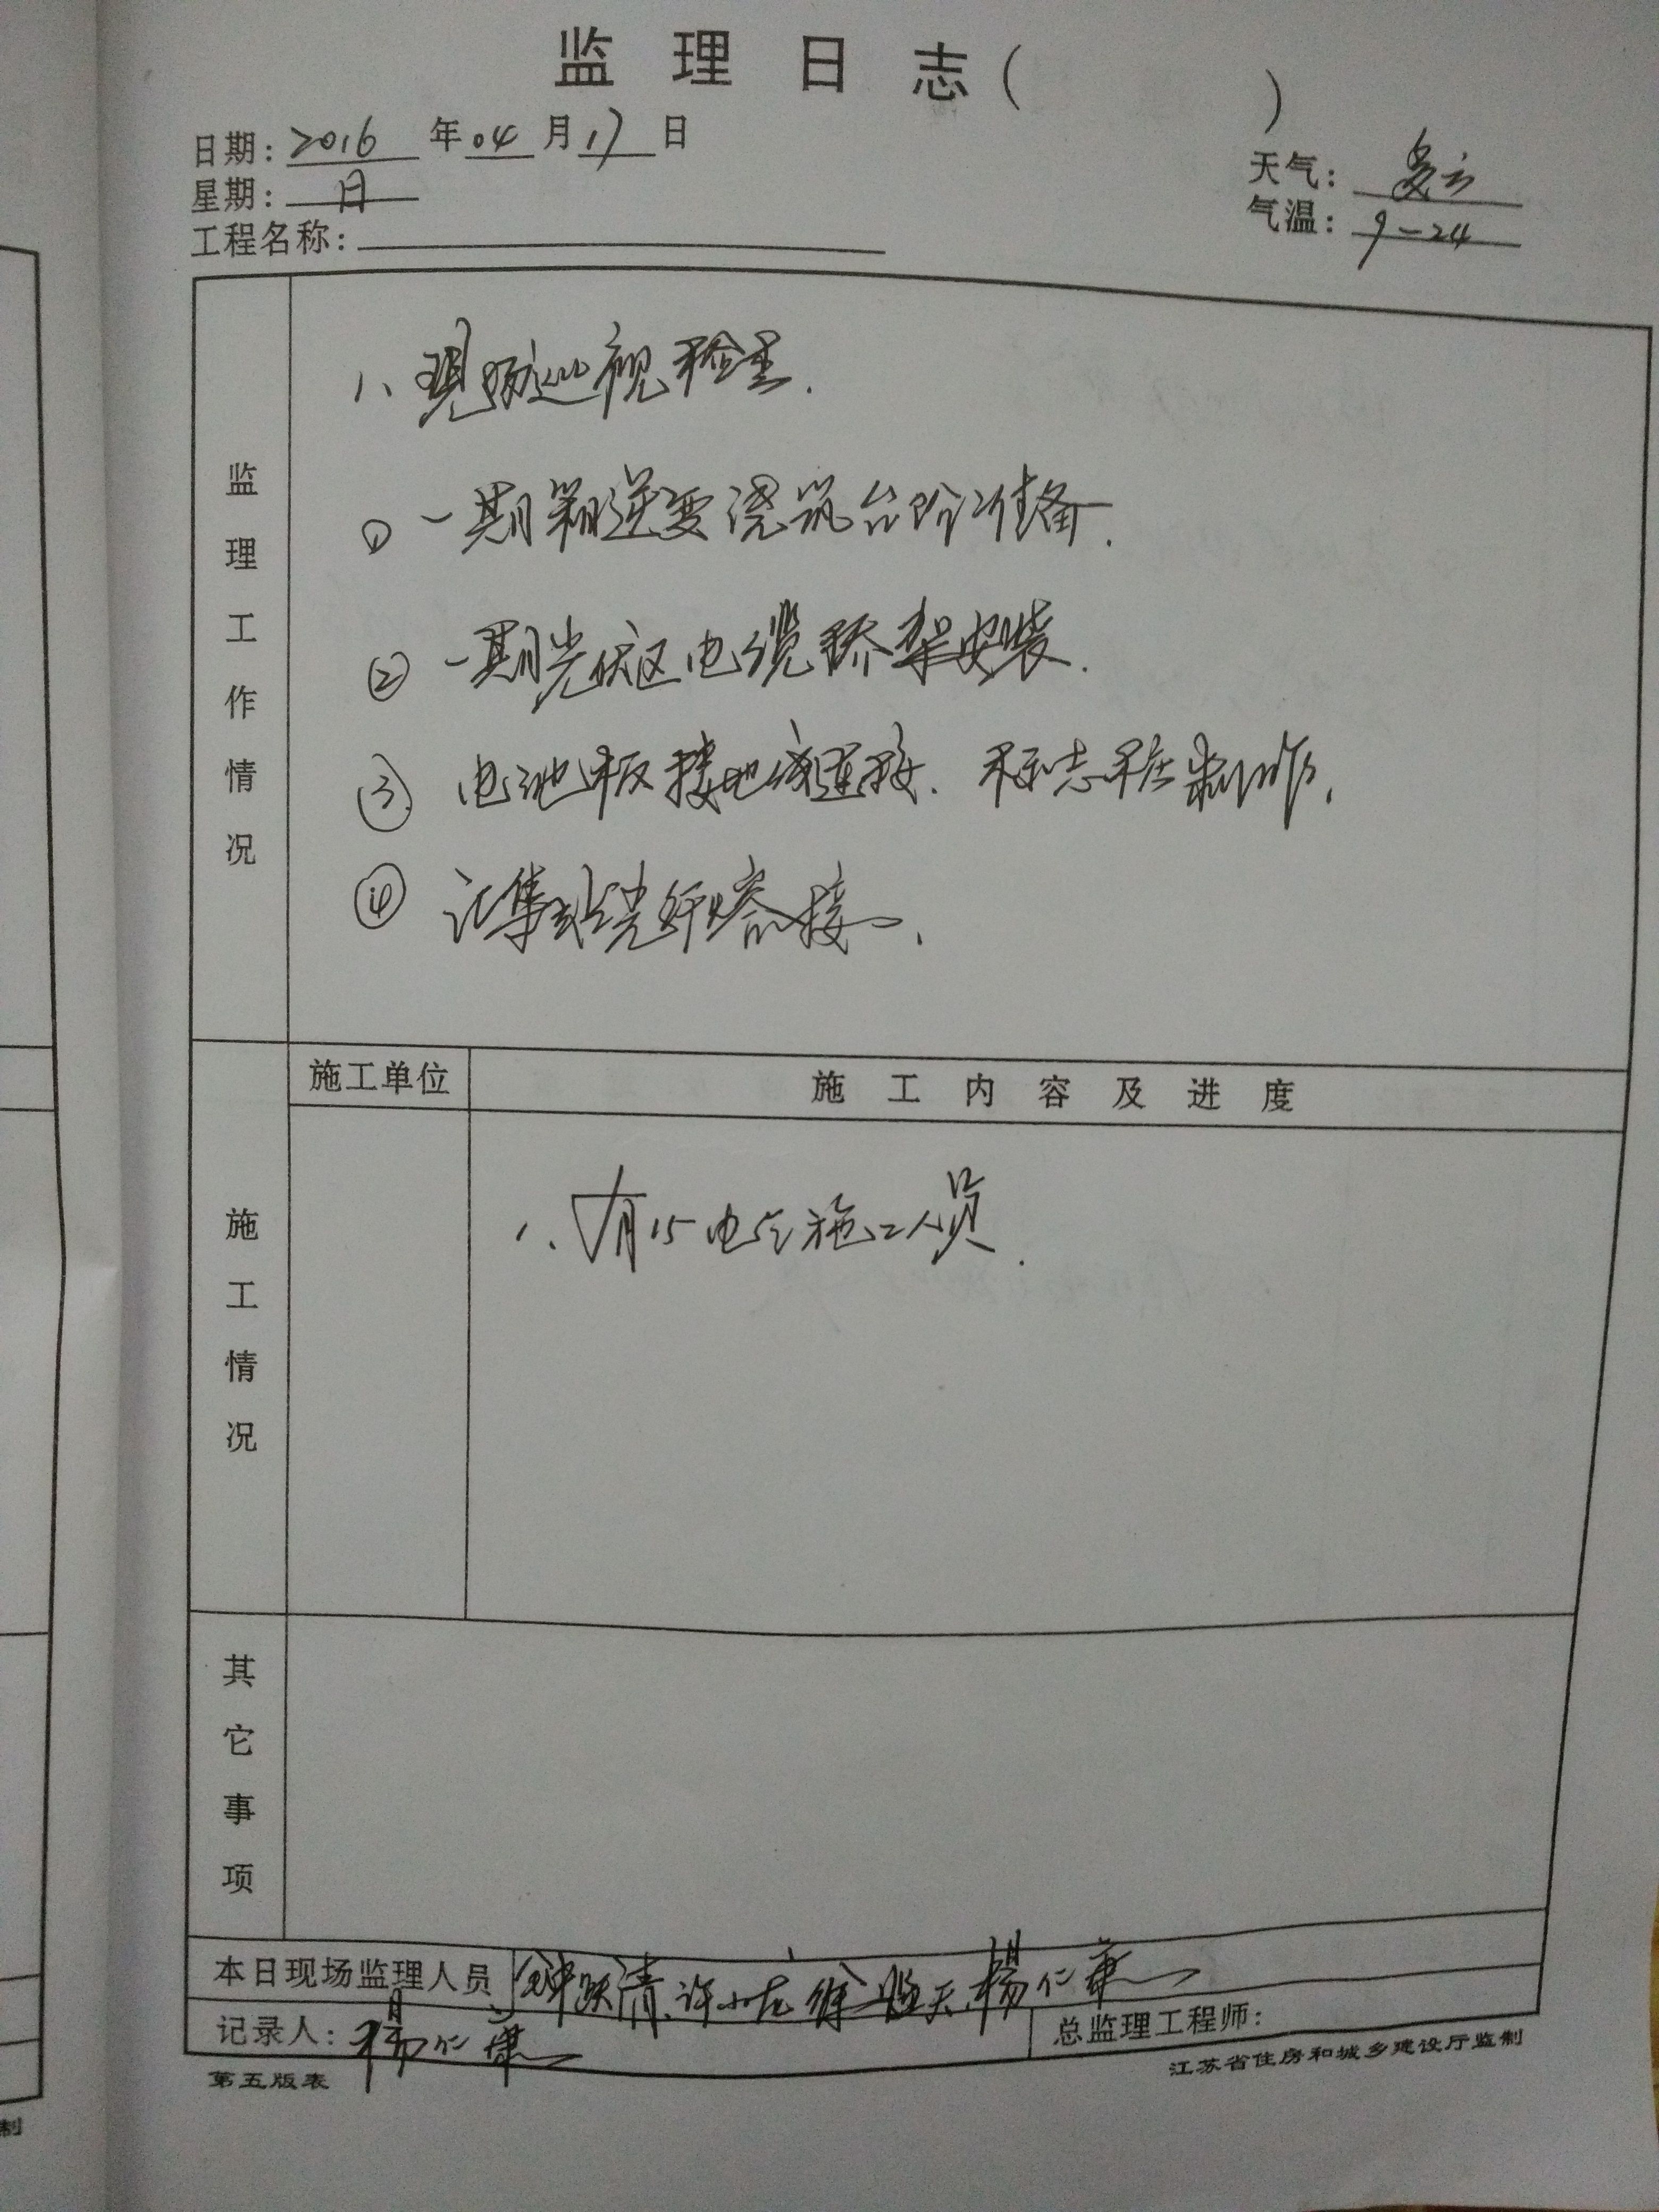 监理日志( )
日期: 2016 年 04 月 17 日
天气: 多云
星期: 日
气温: 9-24
工程名称:
监理工作情况
1、现场巡视检查.
① 一期箱逆变浇筑台阶准备.
② 一期光伏区电缆桥架安装.
③ 电池板接地线连接. 标志桩制作.
④ 汇集站光纤熔接.
施工单位 施工内容及进度
施工情况
1、有15电气施工人员.
其它事项
本日现场监理人员 钟跃清、许小龙 徐 天 杨仁康
记录人: 杨仁康 总监理工程师:
第五版表 江苏省住房和城乡建设厅监制
制